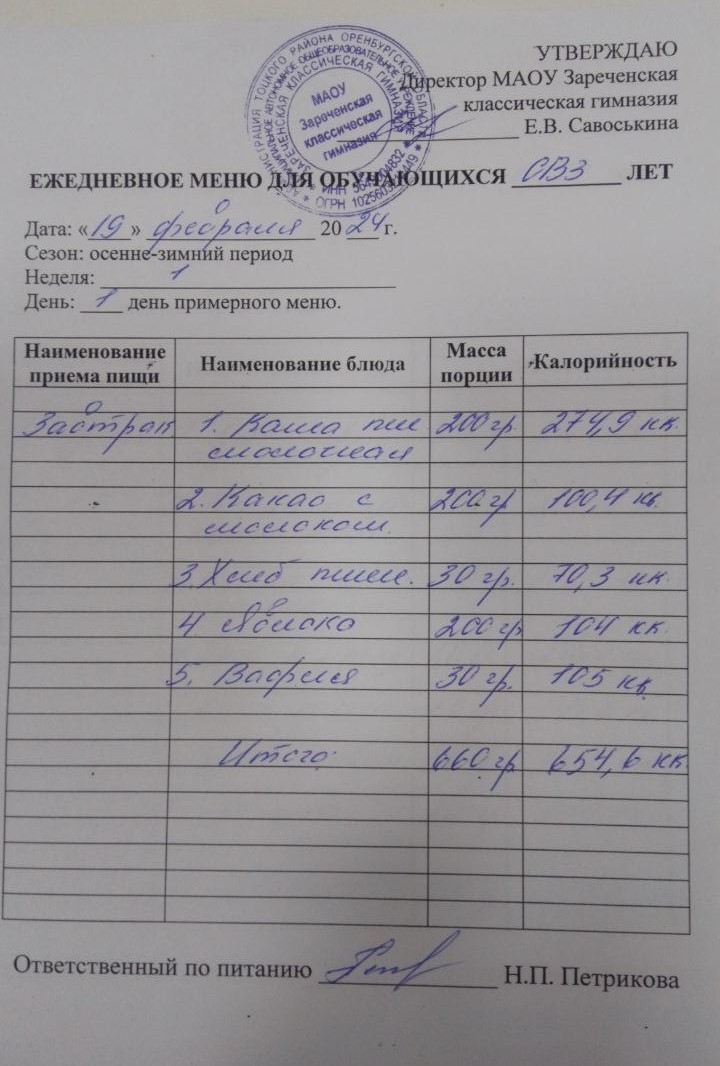 УТВЕРЖДАЮ
Директор МАОУ Зареченская
классическая гимназия
Е.В. Савоськина
МАОУ
Зареченская
классическая
гимназия
ЕЖЕДНЕВНОЕ МЕНЮ ДЛЯ ОБУЧАЮЩИХСЯ ОВЗ ЛЕТ
Дата: «19» февраля 2024 г.
Сезон: осенне-зимний период
Неделя: 1
День: 1 день примерного меню.
Наименование приема пищи Наименование блюда Масса порции Калорийность
Завтрак 1. Каша пше 200 гр. 274,9 кк.
молочная
2. Какао с 200 гр 100,4 кк.
молоком.
3. Хлеб пшен. 30 гр. 70,3 кк.
4 Яблоко 200 гр 104 кк.
5. Вафля 30 гр. 105 кк.
Итого: 660 гр 654,6 кк.
Ответственный по питанию Н.П. Петрикова